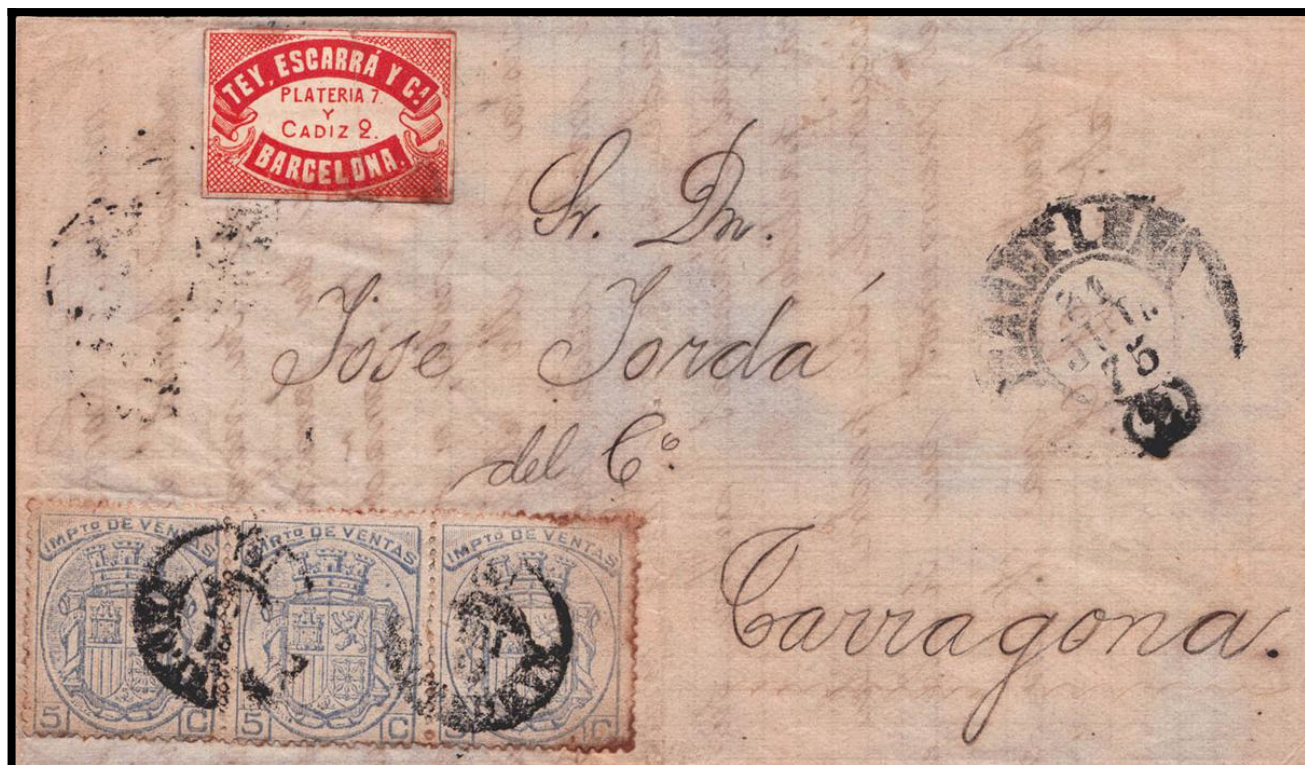 TEY, ESCARRÁ Y Cª.
PLATERIA 7.
Y
CADIZ 2.
BARCELONA.
Sr. Dn.
Jose Jordá
del Cº.
Tarragona.
IMPTO DE VENTAS
5 C
IMPTO DE VENTAS
5 C
IMPTO DE VENTAS
5 C
75